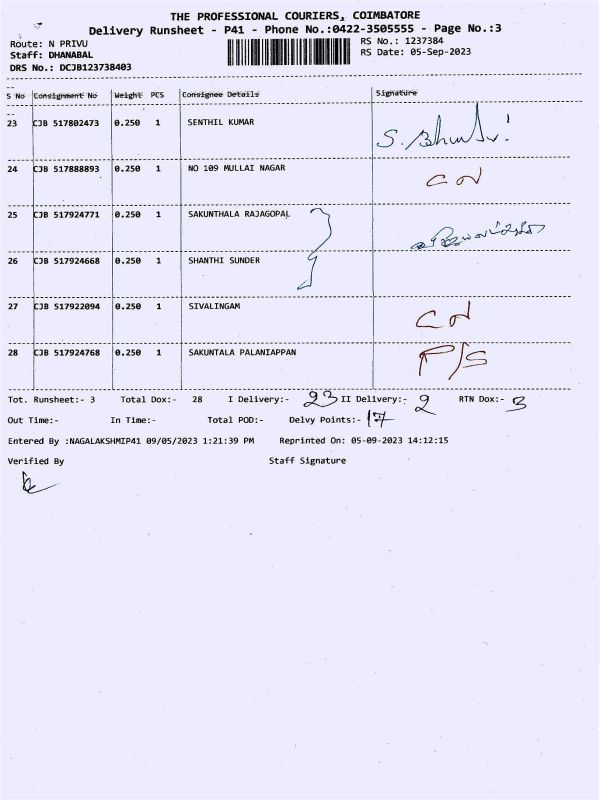 THE PROFESSIONAL COURIERS, COIMBATORE
Delivery Runsheet - P41 - Phone No.:0422-3505555 - Page No.:3
Route: N PRIVU
RS No.: 1237384
Staff: DHANABAL
RS Date: 05-Sep-2023
DRS No.: DCJB123738403
S No Consignment No Weight PCS Consignee Details Signature
23 CJB 517802473 0.250 1 SENTHIL KUMAR S.
24 CJB 517888893 0.250 1 NO 109 MULLAI NAGAR
25 CJB 517924771 0.250 1 SAKUNTHALA RAJAGOPAL
26 CJB 517924668 0.250 1 SHANTHI SUNDER
27 CJB 517922094 0.250 1 SIVALINGAM
28 CJB 517924768 0.250 1 SAKUNTALA PALANIAPPAN P/S
Tot. Runsheet:- 3 Total Dox:- 28 I Delivery:- 23 II Delivery:- 2 RTN Dox:- 3
Out Time:- In Time:- Total POD:- Delvy Points:- 17
Entered By :NAGALAKSHMIP41 09/05/2023 1:21:39 PM Reprinted On: 05-09-2023 14:12:15
Verified By Staff Signature